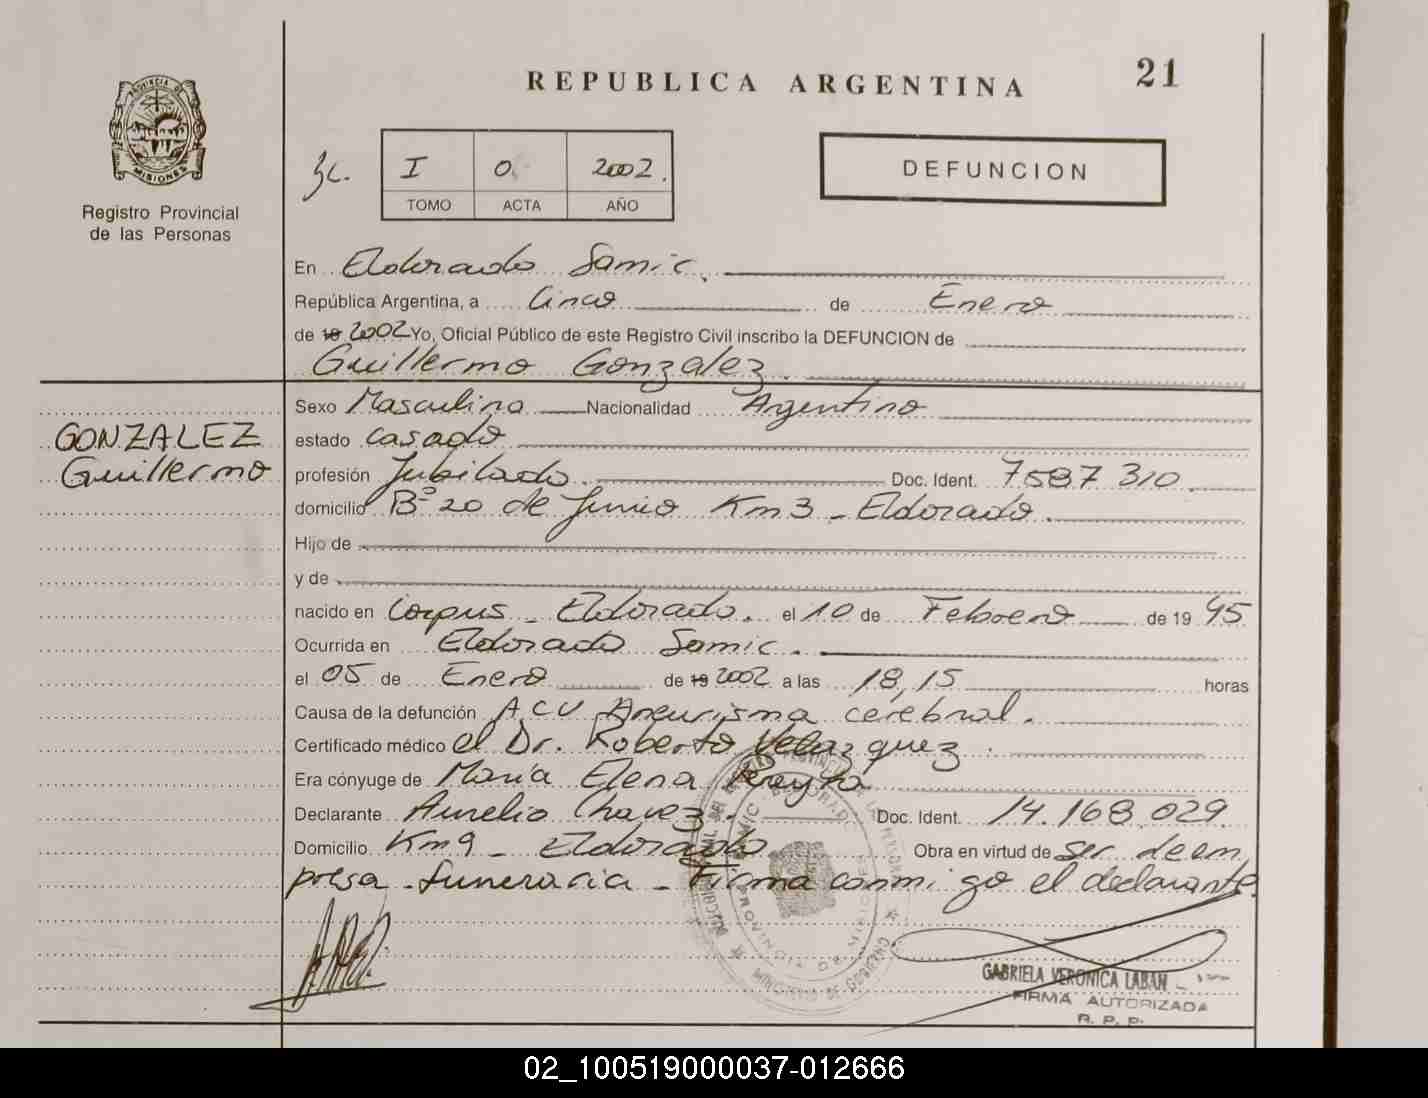 REPUBLICA ARGENTINA
21
PROVINCIA DE
MISIONES
Registro Provincial
de las Personas
I 0 2002.
TOMO ACTA AÑO
DEFUNCION
En Eldorado Samic.
República Argentina, a Cinco de Enero
de 19 2002 Yo, Oficial Público de este Registro Civil inscribo la DEFUNCION de
Guillermo Gonzalez.
GONZALEZ
Guillermo
Sexo Masculino Nacionalidad Argentino
estado casado
profesión Jubilado. Doc. Ident. 7587310.
domicilio Bº 20 de Junio Km 3 - Eldorado.
Hijo de
y de
nacido en Corpus - Eldorado. el 10 de Febrero de 19 45
Ocurrida en Eldorado Samic.
el 05 de Enero de 19 2002 a las 18,15 horas
Causa de la defunción ACV Aneurisma cerebral.
Certificado médico el Dr. Roberto Velazquez.
Era cónyuge de María Elena
Declarante Aurelio Chavez. Doc. Ident. 14.168.029.
Domicilio Km 9 - Eldorado. Obra en virtud de ser de em
presa funeraria - Firma conmigo el declarante.
GABRIELA VERONICA LABAN
FIRMA AUTORIZADA
R. P. P.
02_100519000037-012666